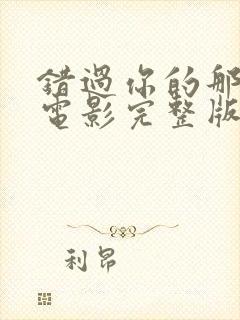 錯過你的那
電影完整版
利昂